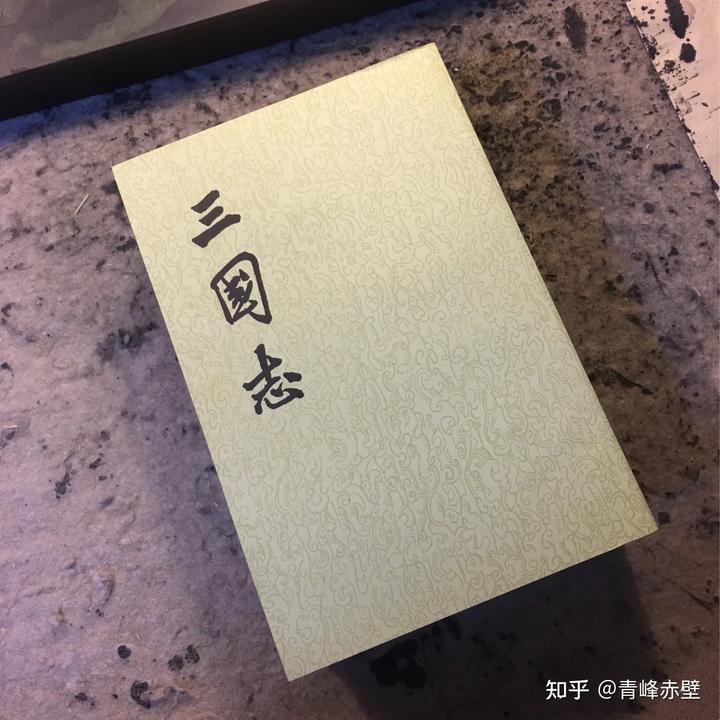 三國志
知乎 @青峰赤壁